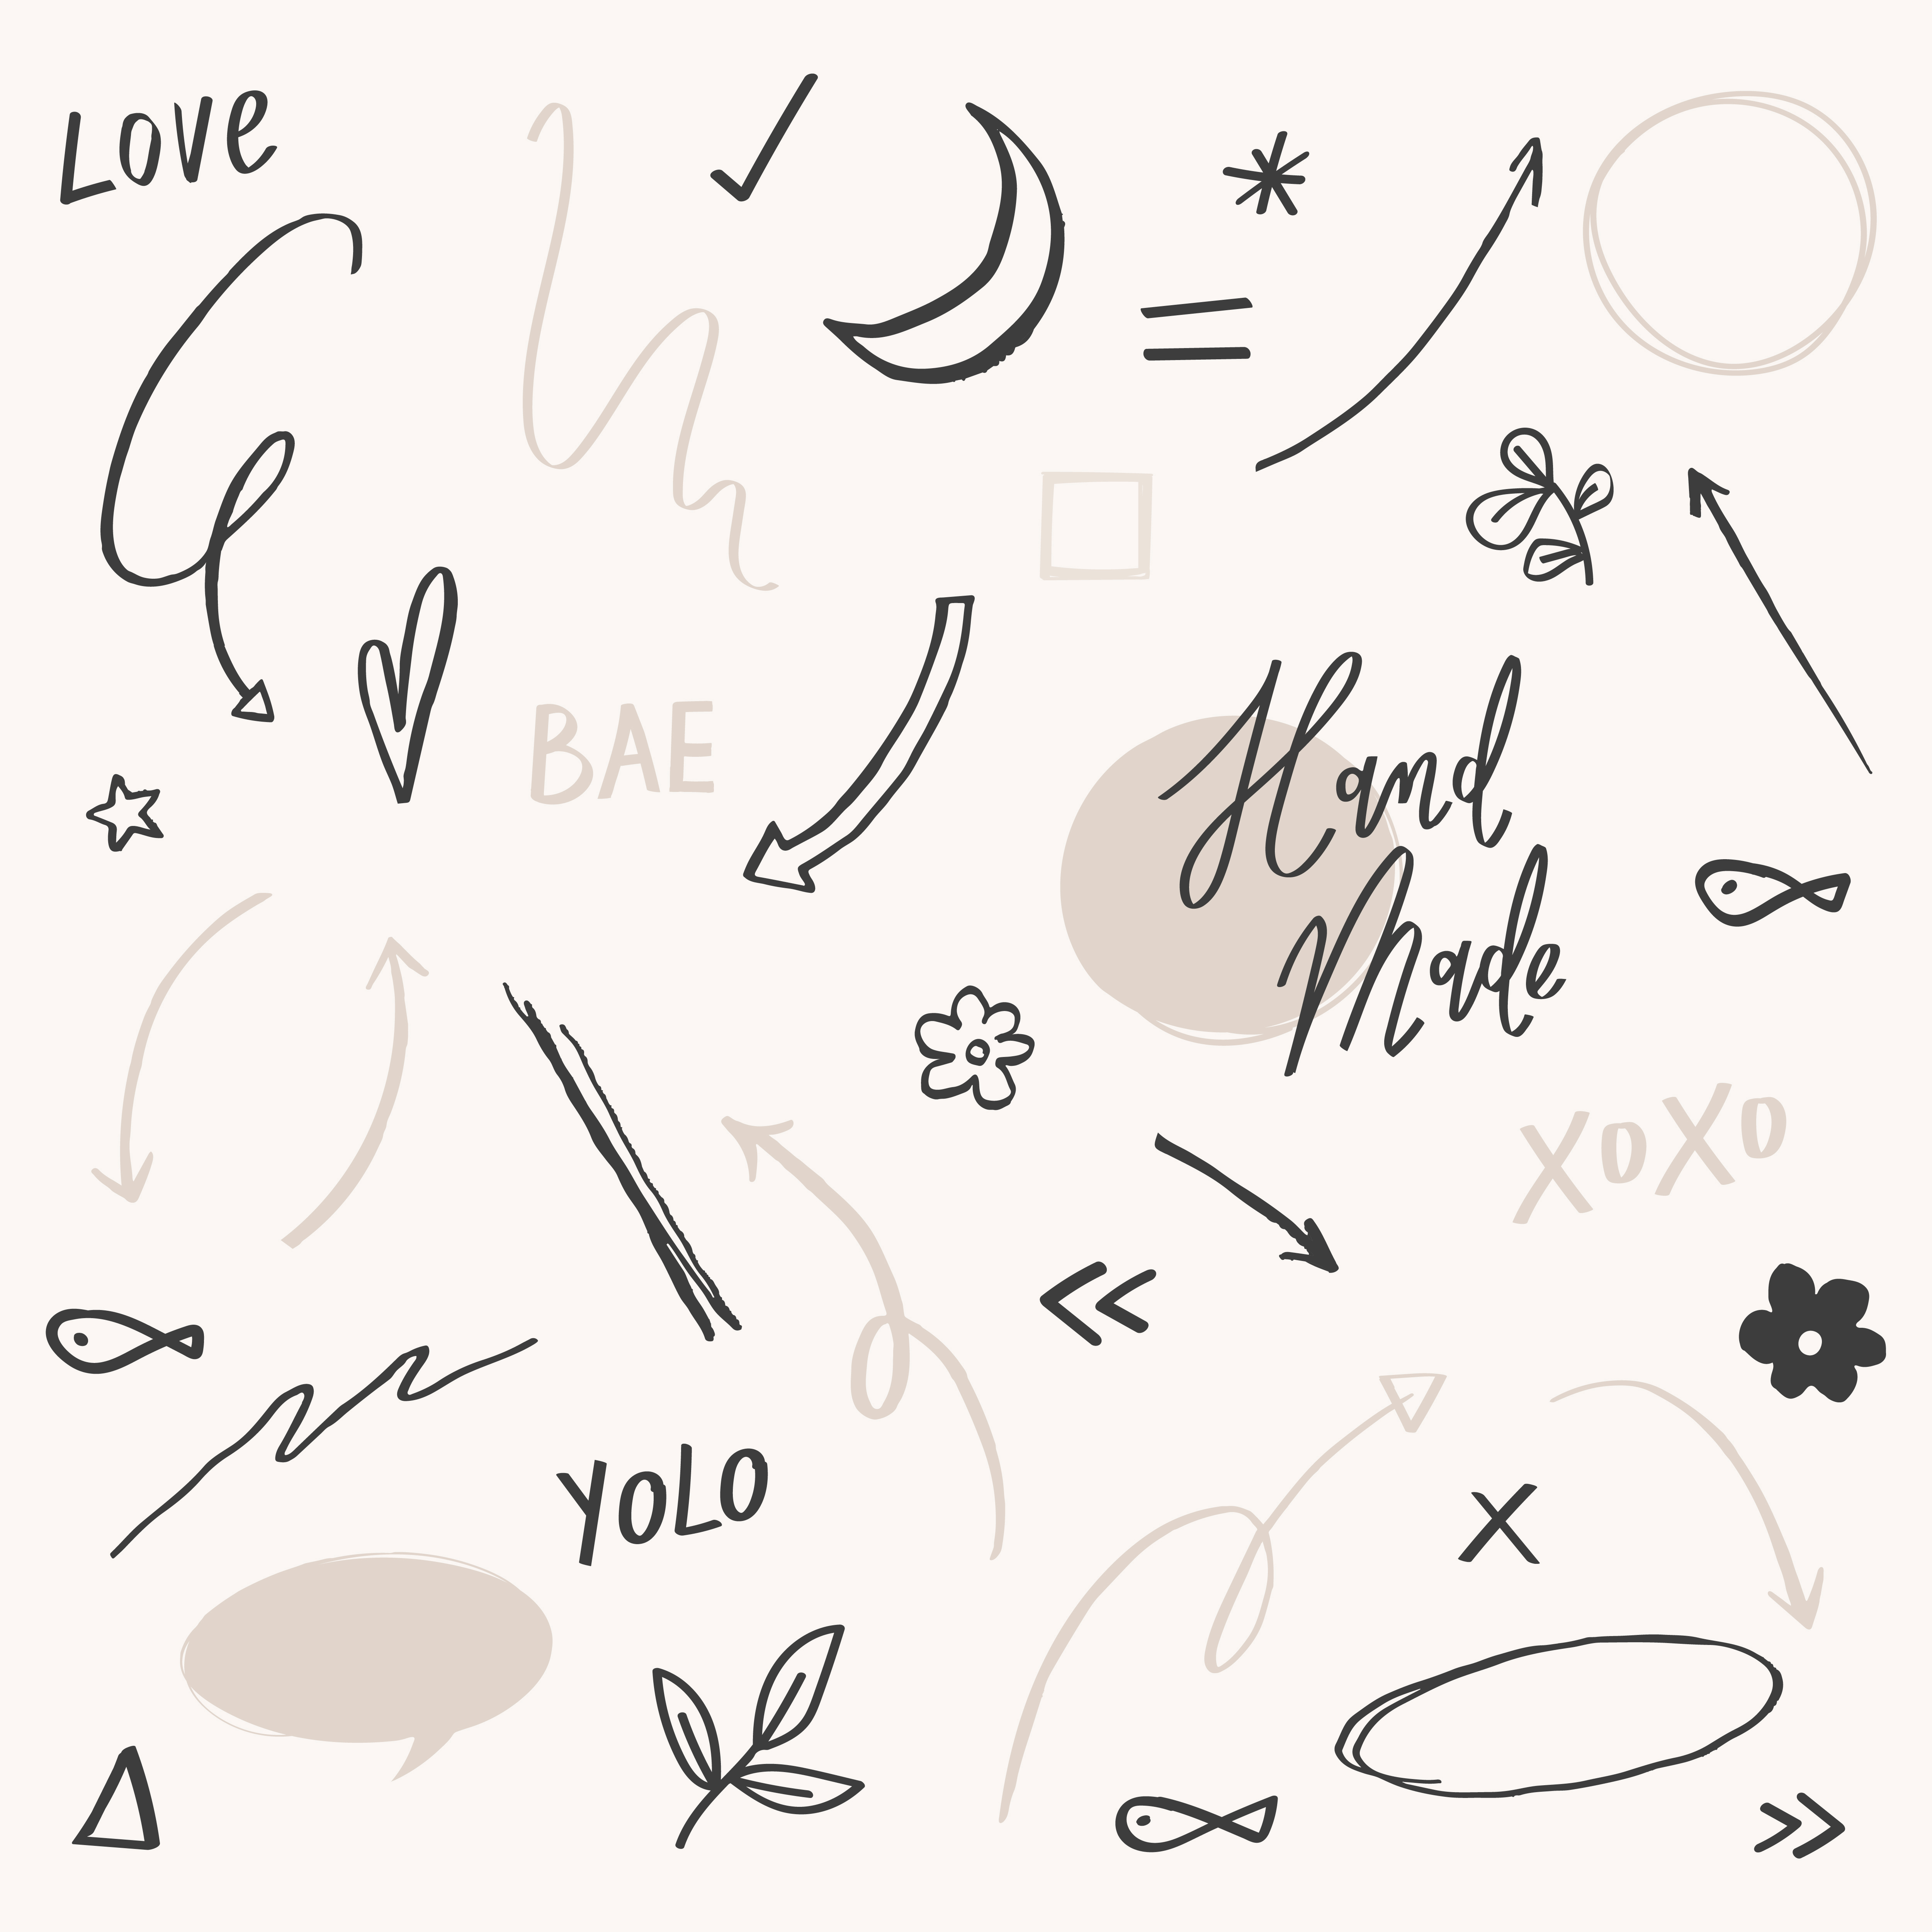 LOVE
BAE
Hand
Made
XOXO
YOLO
X